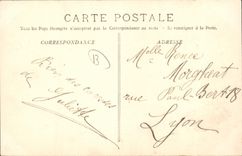 CARTE POSTALE
Tous les Pays étrangers n'acceptent pas la Correspondance au recto. - Se renseigner à la Poste.
CORRESPONDANCE
ADRESSE
B
Melle Renée
de
Juliette
rue Paul-Bert 18
Lyon